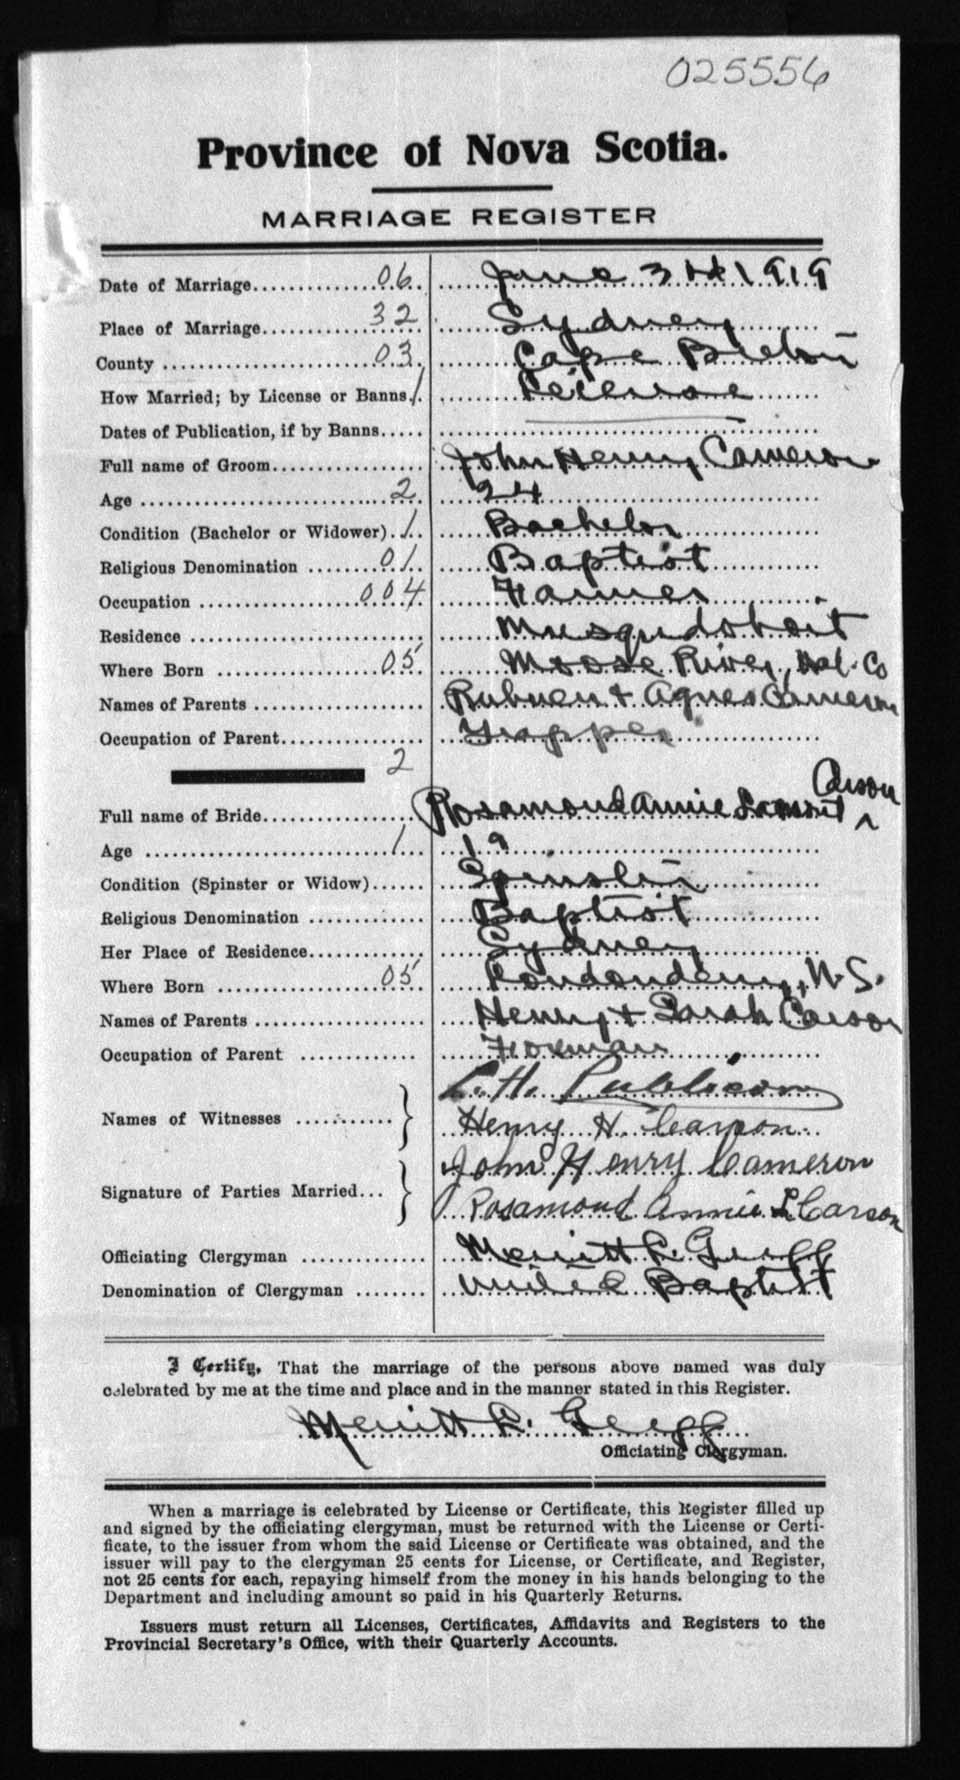 025556
Province of Nova Scotia.
MARRIAGE REGISTER
Date of Marriage 06 June 3rd 1919
Place of Marriage 32 Sydney
County 03 Cape Breton
How Married; by License or Banns 1 License
Dates of Publication, if by Banns
Full name of Groom John Henry Cameron
Age 2 24
Condition (Bachelor or Widower) 1 Bachelor
Religious Denomination 01 Baptist
Occupation 004 Farmer
Residence Musquodoboit
Where Born 05 Moose River, Hal. Co
Names of Parents Rubuen + Agnes Cameron
Occupation of Parent Trapper
2
Carson
Full name of Bride Rosamond Annie Lamont ^
Age 1 19
Condition (Spinster or Widow) Spinster
Religious Denomination Baptist
Her Place of Residence Sydney
Where Born 05 Londonderry, N.S.
Names of Parents Henry + Sarah Carson
Occupation of Parent
Names of Witnesses } C. H.
Henry H. Carson
Signature of Parties Married... } John Henry Cameron
Rosamond Annie L Carson
Officiating Clergyman Merritt L. Gregg
Denomination of Clergyman United Baptist
I Certify, That the marriage of the persons above named was duly
celebrated by me at the time and place and in the manner stated in this Register.
Merritt L. Gregg
Officiating Clergyman.
When a marriage is celebrated by License or Certificate, this Register filled up
and signed by the officiating clergyman, must be returned with the License or Certi-
ficate, to the issuer from whom the said License or Certificate was obtained, and the
issuer will pay to the clergyman 25 cents for License, or Certificate, and Register,
not 25 cents for each, repaying himself from the money in his hands belonging to the
Department and including amount so paid in his Quarterly Returns.
Issuers must return all Licenses, Certificates, Affidavits and Registers to the
Provincial Secretary's Office, with their Quarterly Accounts.